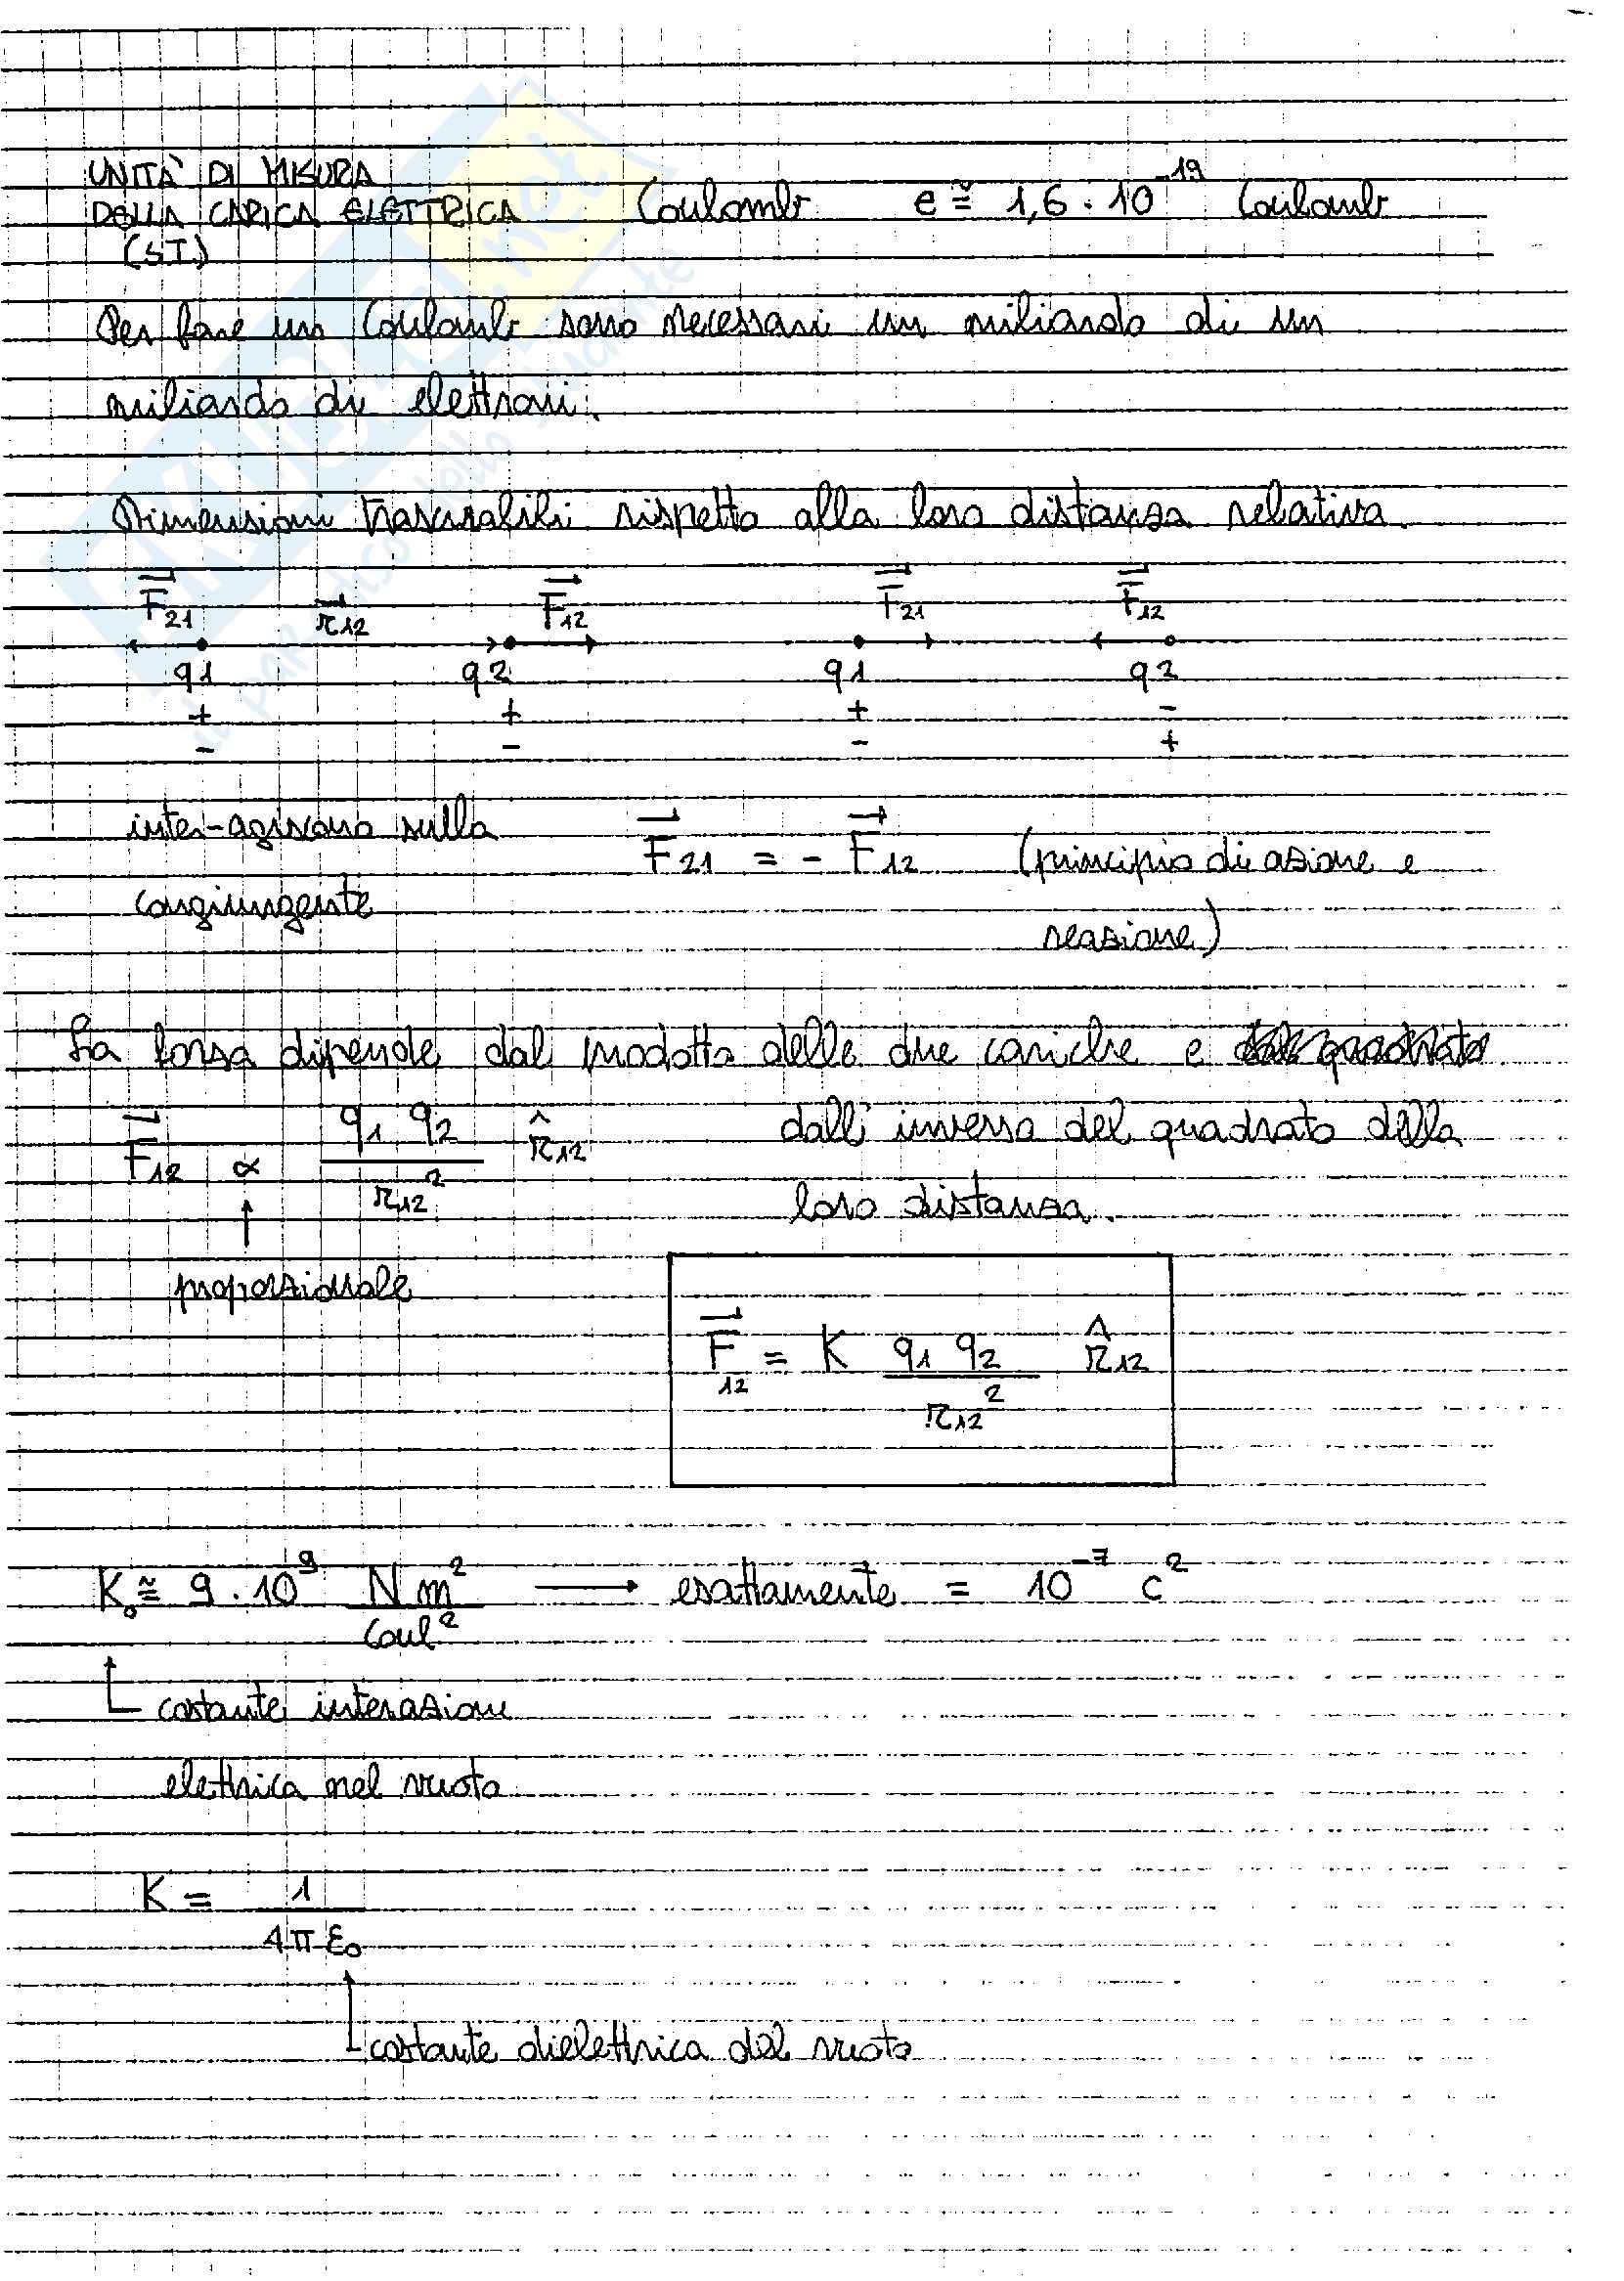 UNITÀ DI MISURA
DELLA CARICA ELETTRICA Coulomb e ≅ 1,6 · 10^-19 Coulomb
(S.I.)
Per fare un Coulomb sono necessari un miliardo di un
miliardo di elettroni.
Dimensioni trascurabili rispetto alla loro distanza relativa.
F21 r12 F12 F21 F12
q1 q2 q1 q2
+ + + -
- - - +
inter-agiscono sulla F21 = - F12 (principio di azione e
congiungente reazione)
La forza dipende dal prodotto delle due cariche e
F12 ∝ q1 q2 / r12^2 r̂12 dall'inverso del quadrato della
loro distanza.
proporzionale
F12 = K q1 q2 / r12^2 r̂12
K0 ≅ 9 · 10^9 N m^2 / Coul^2 → esattamente = 10^-7 c^2
costante interazione
elettrica nel vuoto
K = 1 / 4π ε0
costante dielettrica del vuoto